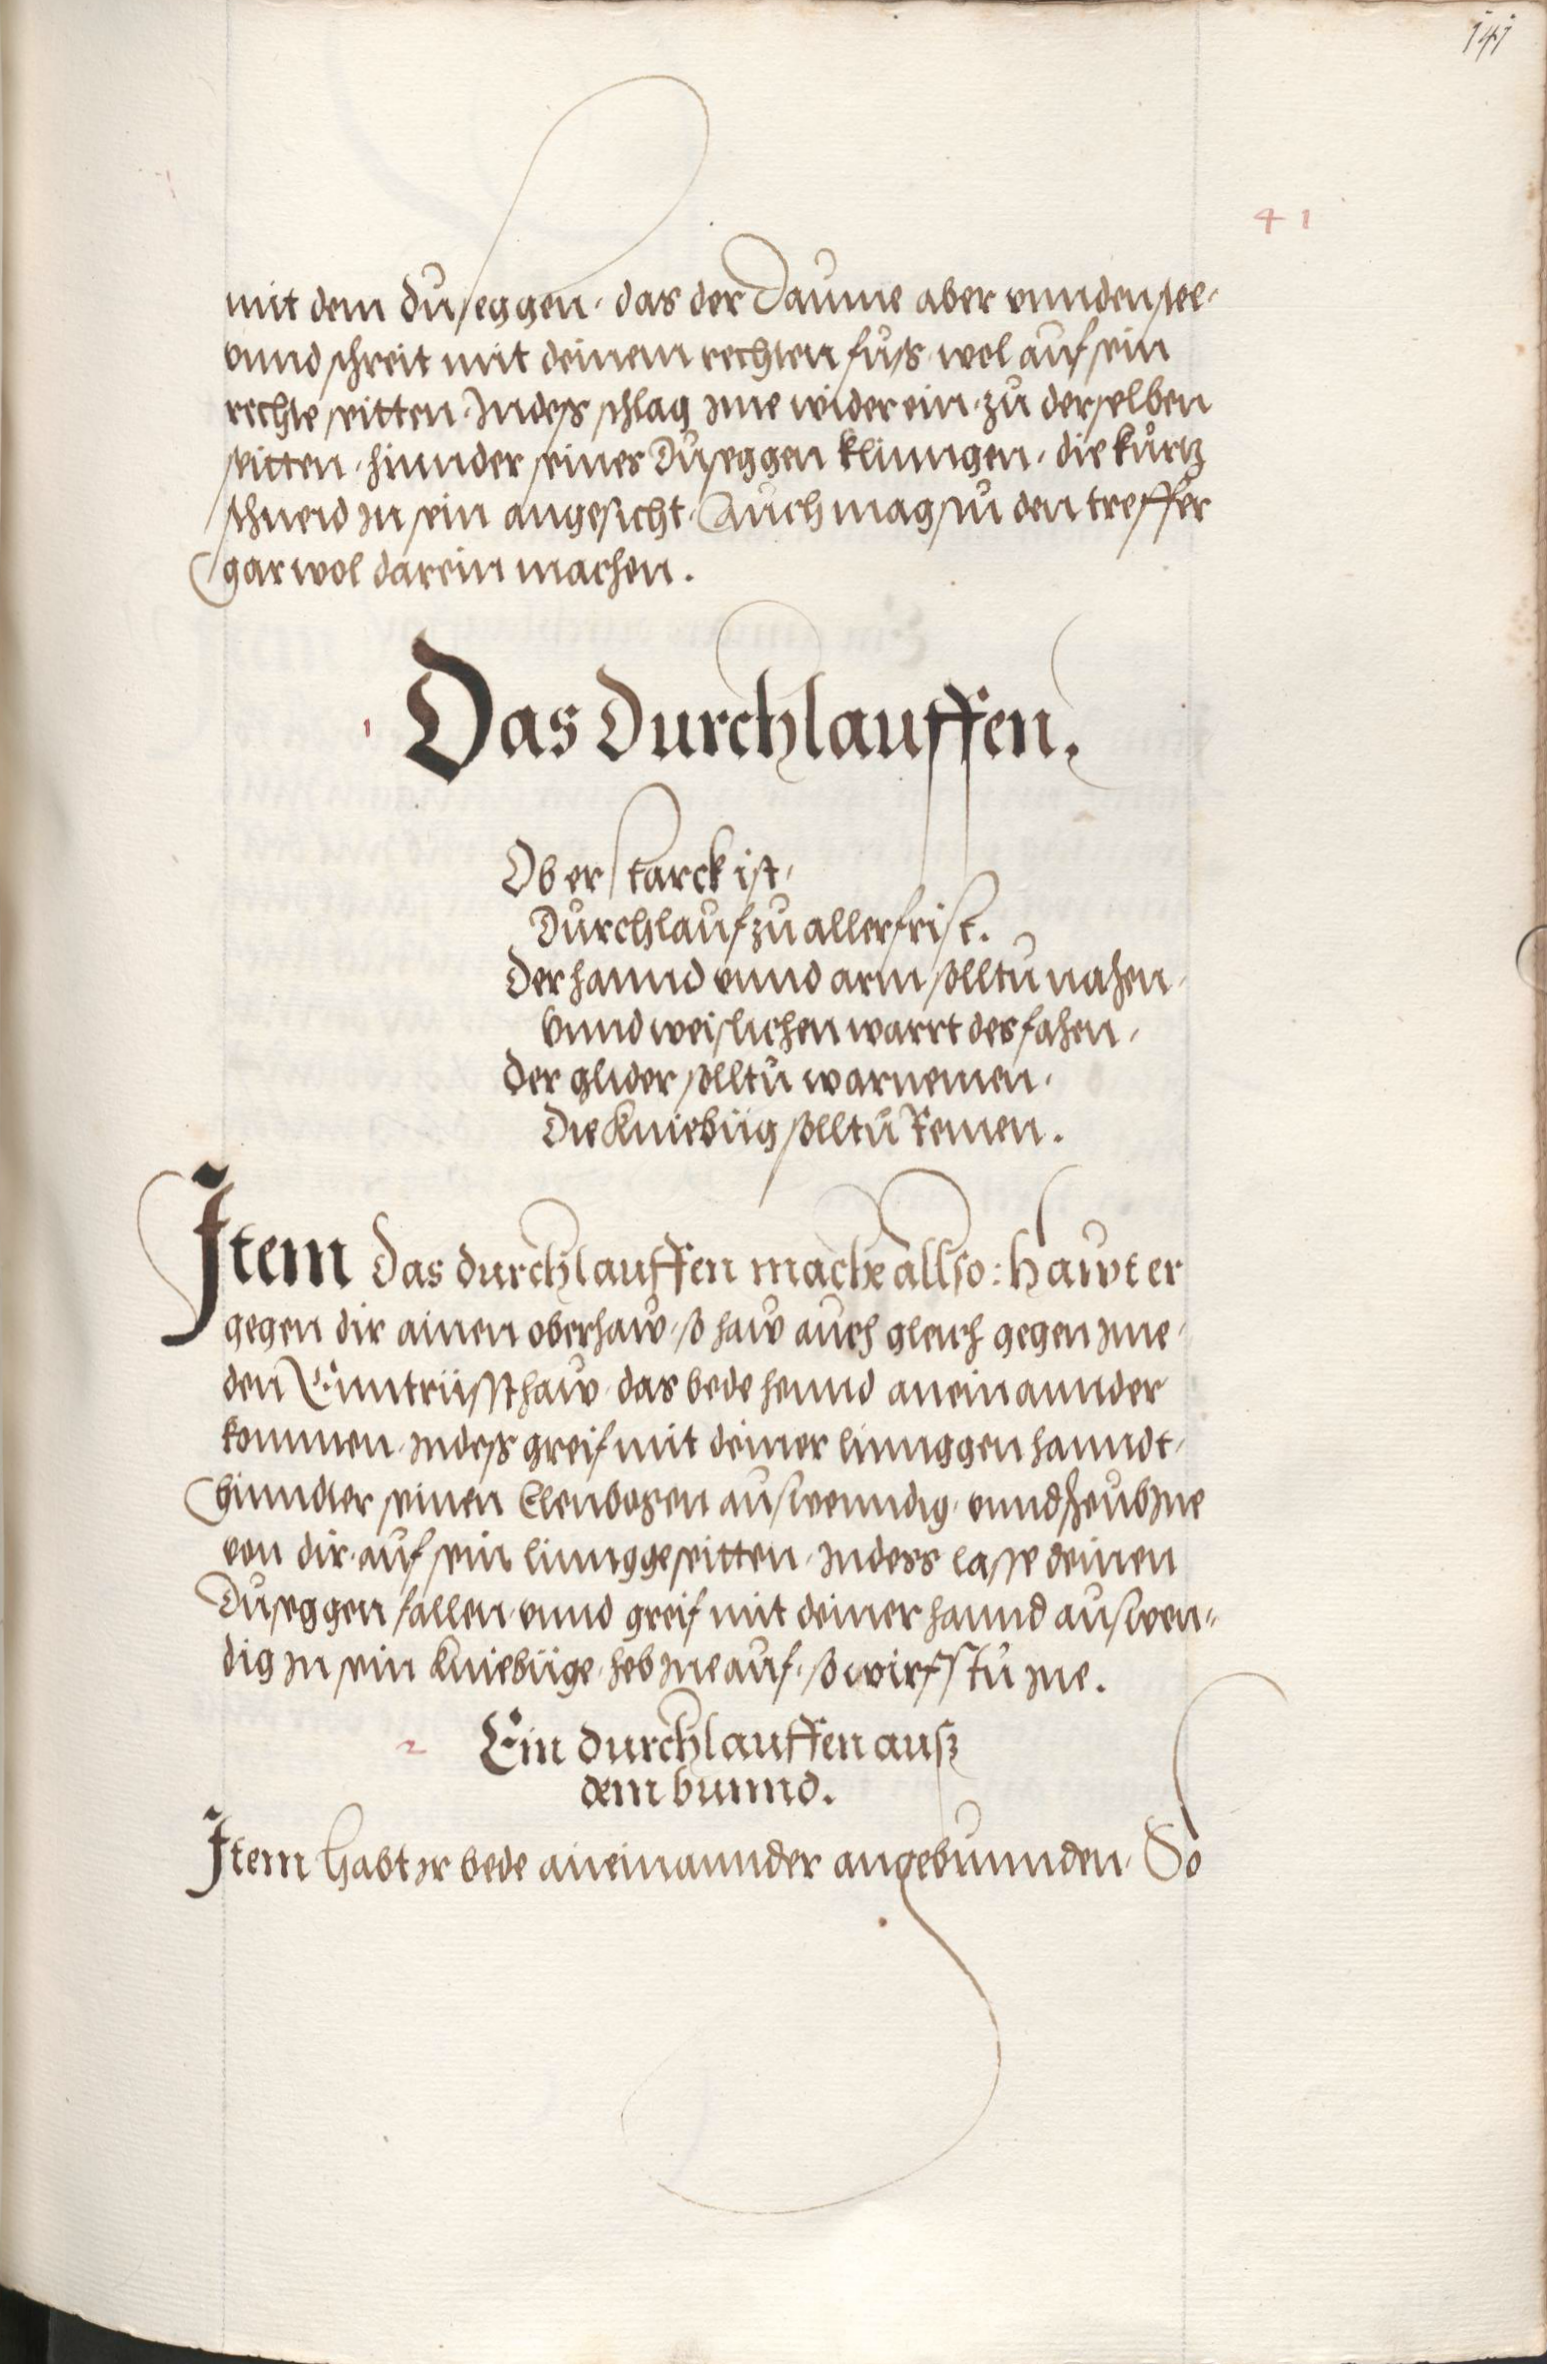 141
41
mit dem duseggen, das der Daume aber vnnden stee,
vnnd schreit mit deinem rechten fuss, wol auf sein
rechte seitten, Indess schlag Ime wider ein, zu derselben
seitten, hinnder seines Duseggen klinngen, die kurtz
schneid In sein angesicht, Auch magstu den treffer
gar wol darein machen.
1 Das Durchlauffen.
Ob er starck ist,
Durchlauf zu aller frist.
Der hannd vnnd arm solltu nahen,
Vnnd weislichen warrt des fahen,
Der glider solltu warnemen,
Die Kniebüg solltu Remen.
Item das durchlauffen mache allso: Hawt er
gegen dir ainen oberhaw, so haw auch gleich gegen Ime,
den Enntrüssthaw, das bede hennd aneinannder
kommen, Indess greif mit deiner linnggen hanndt,
hinnder seinen Elenbogen auswenndig, vnnd scheub Ine
von dir, auf sein linngge seitten, Indess lasse deinen
Duseggen fallen, vnnd greif mit deiner hannd auswen=
dig In sein kniebüge, heb Ine auf, so wirfstu Ine.
2 Ein durchlauffen ausz
dem bunnd.
Item habt Ir bede aneinannder angebunnden, So